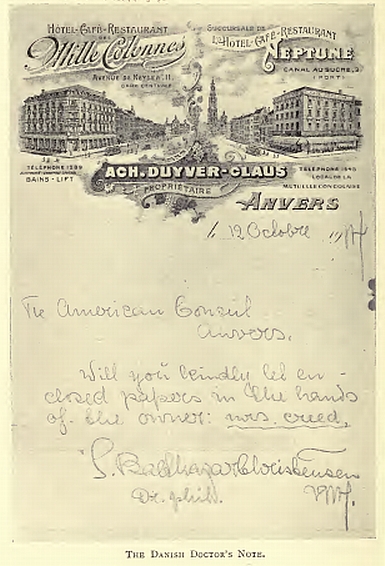 HÔTEL-CAFÉ-RESTAURANT
DES
Mille Colonnes
AVENUE DE KEYSER, 11.
GARE CENTRALE
SUCCURSALE DE
L'HÔTEL-CAFÉ-RESTAURANT
NEPTUNE
CANAL AU SUCRE, 3
(PORT)
TÉLÉPHONE 1299
BAINS - LIFT
ACH. DUYVER-CLAUS
PROPRIÉTAIRE
TÉLÉPHONE 1640
LOCAL DE LA
MUTUELLE CONGOLAISE
ANVERS
12 Octobre
The American Consul
Anvers.
Will you kindly let en-
closed papers in the hands
of the owner: mrs. creed.
S. Balthazar Christensen
Dr. phil.
THE DANISH DOCTOR'S NOTE.